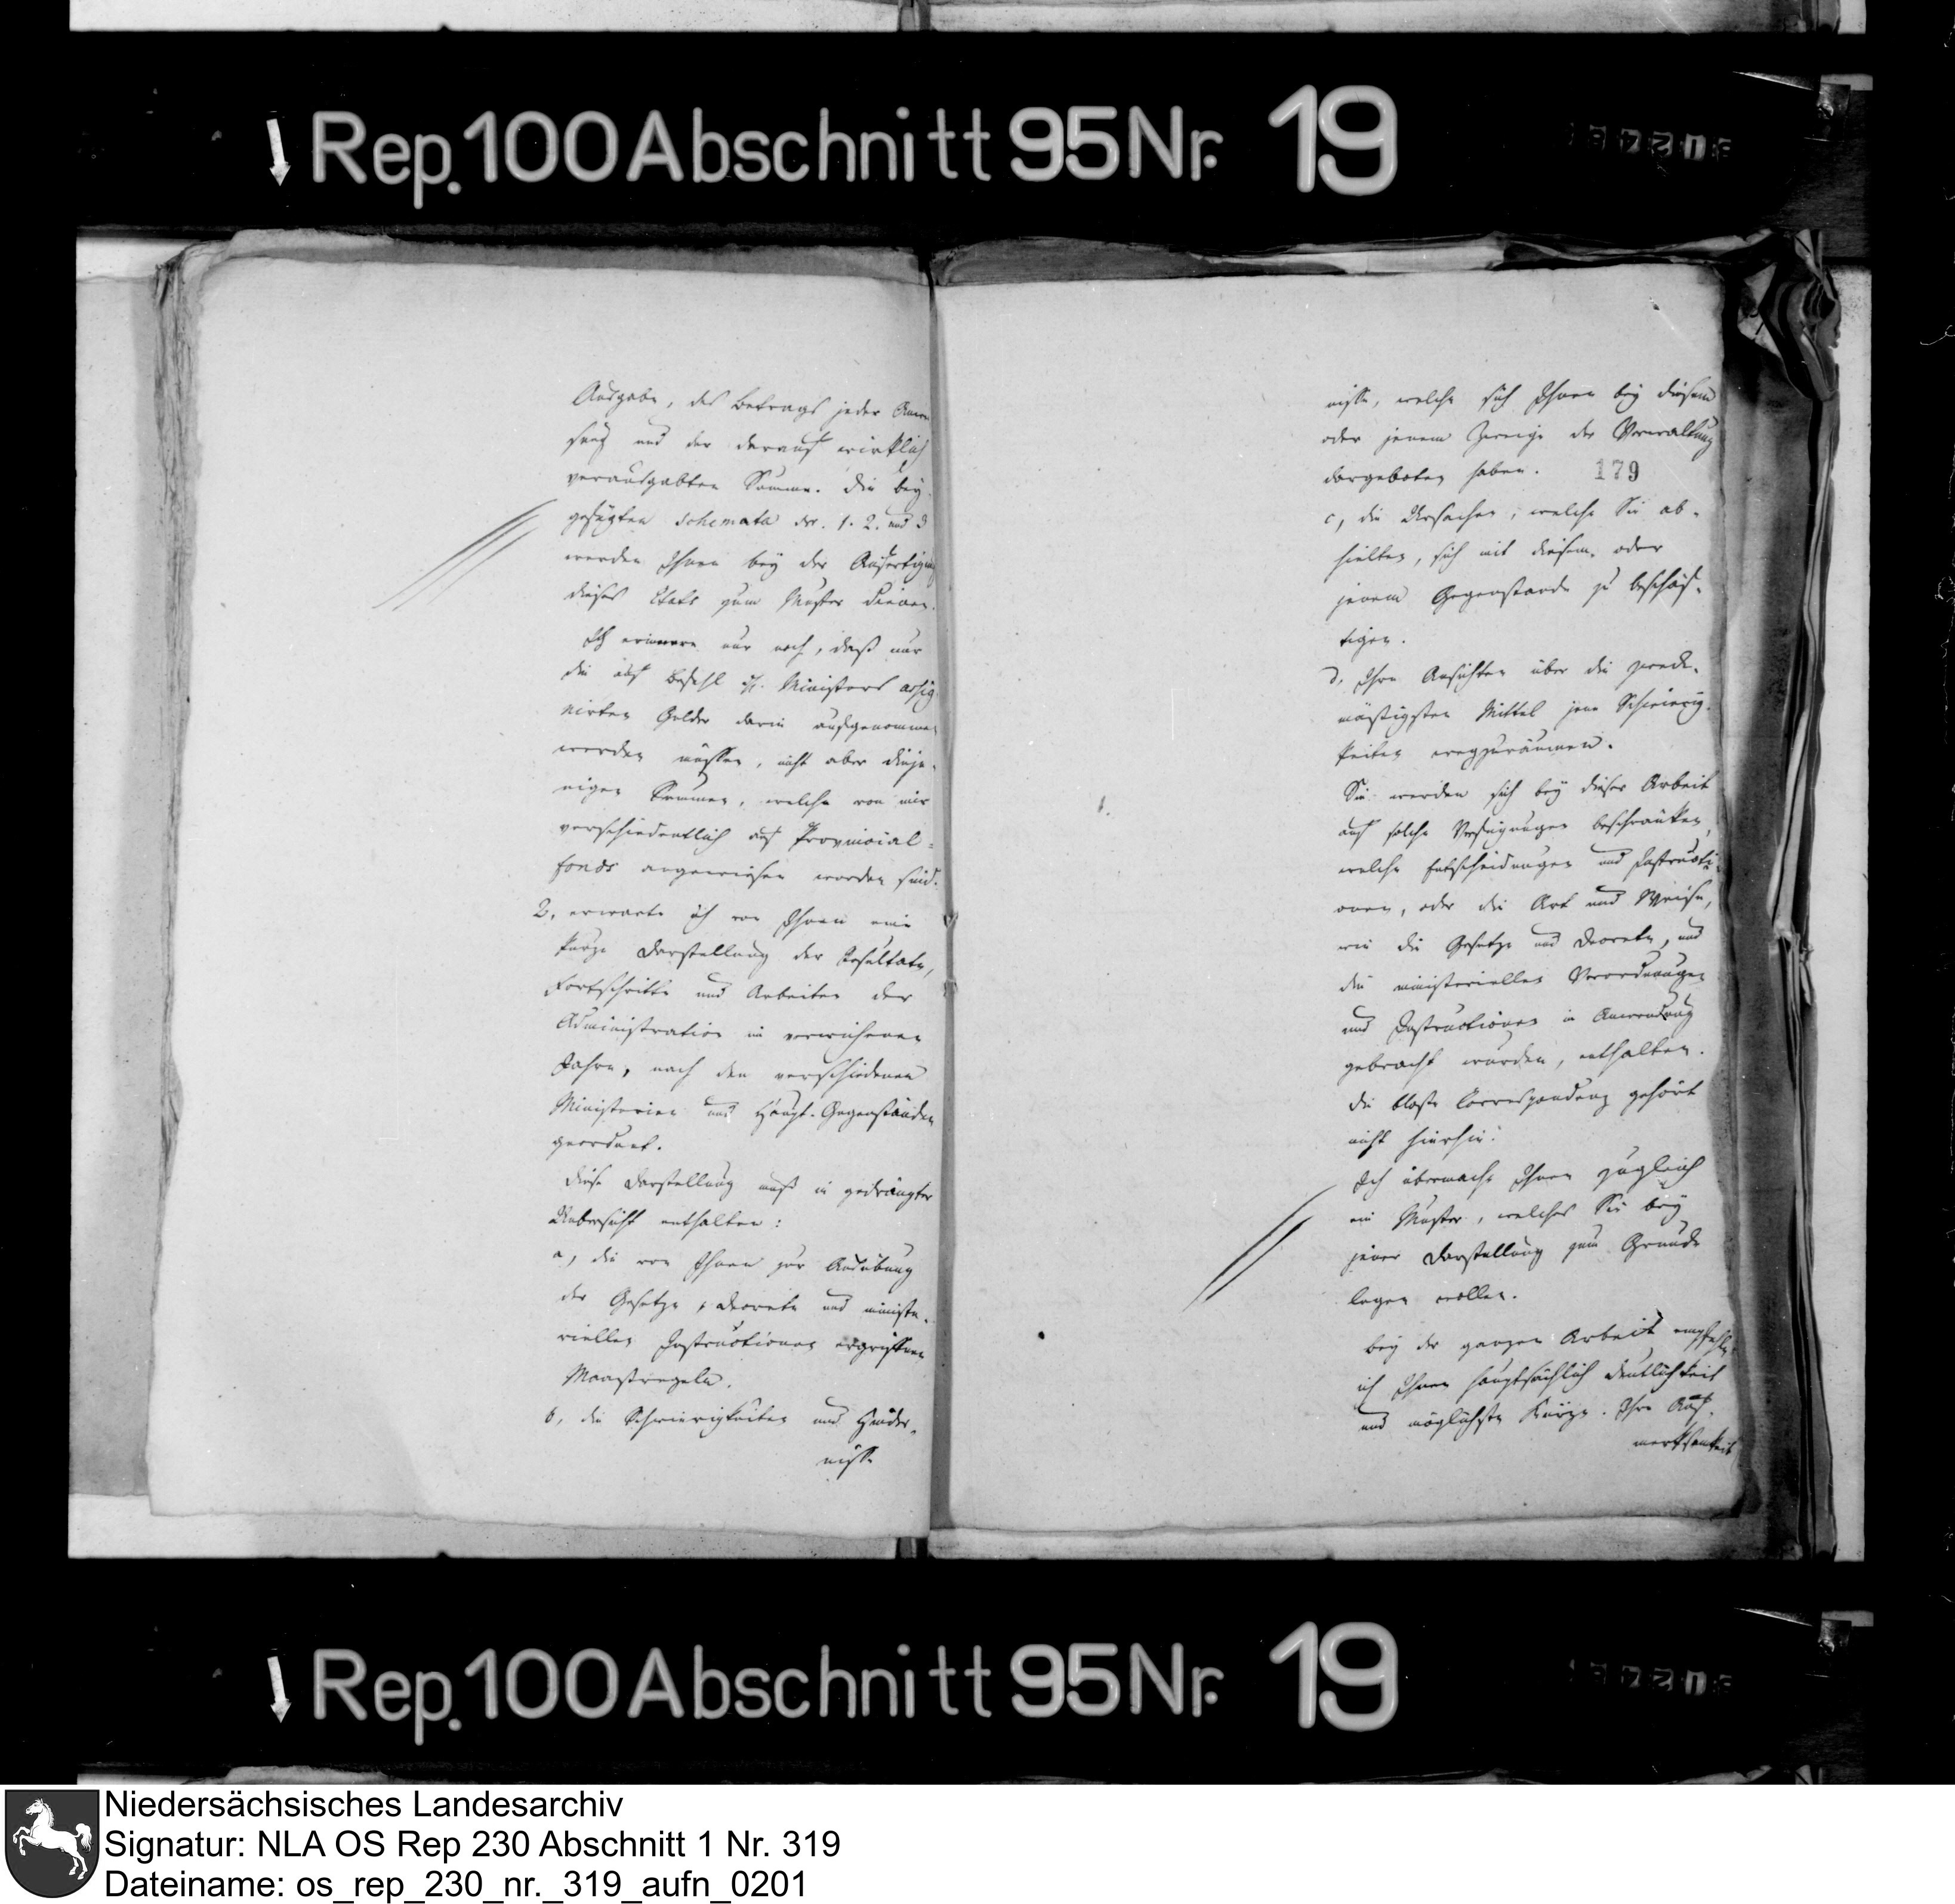 Rep. 100 Abschnitt 95 Nr. 19
Ausgabe, des Betrags jeder Anwei
sung und der darauf wirklich
verausgabten Summe. Die bey-
gefügten Schemata Nr. 1. 2. und 3
werden Ihnen bey der Ausfertigung
dieses Etats zum Muster dienen.
Ich erinnere nur noch, daß nur
die auf Befehl Ministers assig-
nirten Gelder darin aufgenommen
werden müssen, nicht aber dieje-
nigen Summen, welche von mir
verschiedentlich auf Provincial-
fonds angewiesen worden sind.
2, erwarte ich von Ihnen eine
kurze Darstellung der Resultate,
Fortschritte und Arbeiten der
Administration im verwichenen
Jahre, nach den verschiedenen
Ministerien und Haupt-Gegenständen
geordnet.
Diese Darstellung muß in gedrängter
Uebersicht enthalten:
a, die von Ihnen zur Ausübung
der Gesetze, Decrete und ministe-
riellen Instructionen ergriffenen
Maasregeln.
b, die Schwierigkeiten und Hinder-
nisse
nisse, welche sich Ihnen bey diesem
oder jenem Zweige der Verwaltung
dargeboten haben.
179
c, die Ursachen, welche Sie ab-
hielten, sich mit diesem oder
jenem Gegenstande zu beschäf-
tigen.
d, Ihre Ansichten über die zweck-
mäßigsten Mittel jene Schwierig-
keiten wegzuräumen.
Sie werden sich bey dieser Arbeit
auf solche Verfügungen beschränken,
welche Entscheidungen und Instructi-
onen, oder die Art und Weise,
wie die Gesetze und Decrete, und
die ministeriellen Verordnungen
und Instructionen in Anwendung
gebracht wurden, enthalten.
Die bloße Correspondenz gehört
nicht hierhin.
Ich übermache Ihnen zugleich
ein Muster, welches Sie bey
jener Darstellung zum Grunde
legen wollen.
Bey der ganzen Arbeit empfehle
ich Ihnen hauptsächlich Deutlichkeit
und möglichste Kürze. Ihre Auf-
merksamkeit
Rep. 100 Abschnitt 95 Nr. 19
Niedersächsisches Landesarchiv
Signatur: NLA OS Rep 230 Abschnitt 1 Nr. 319
Dateiname: os_rep_230_nr._319_aufn_0201